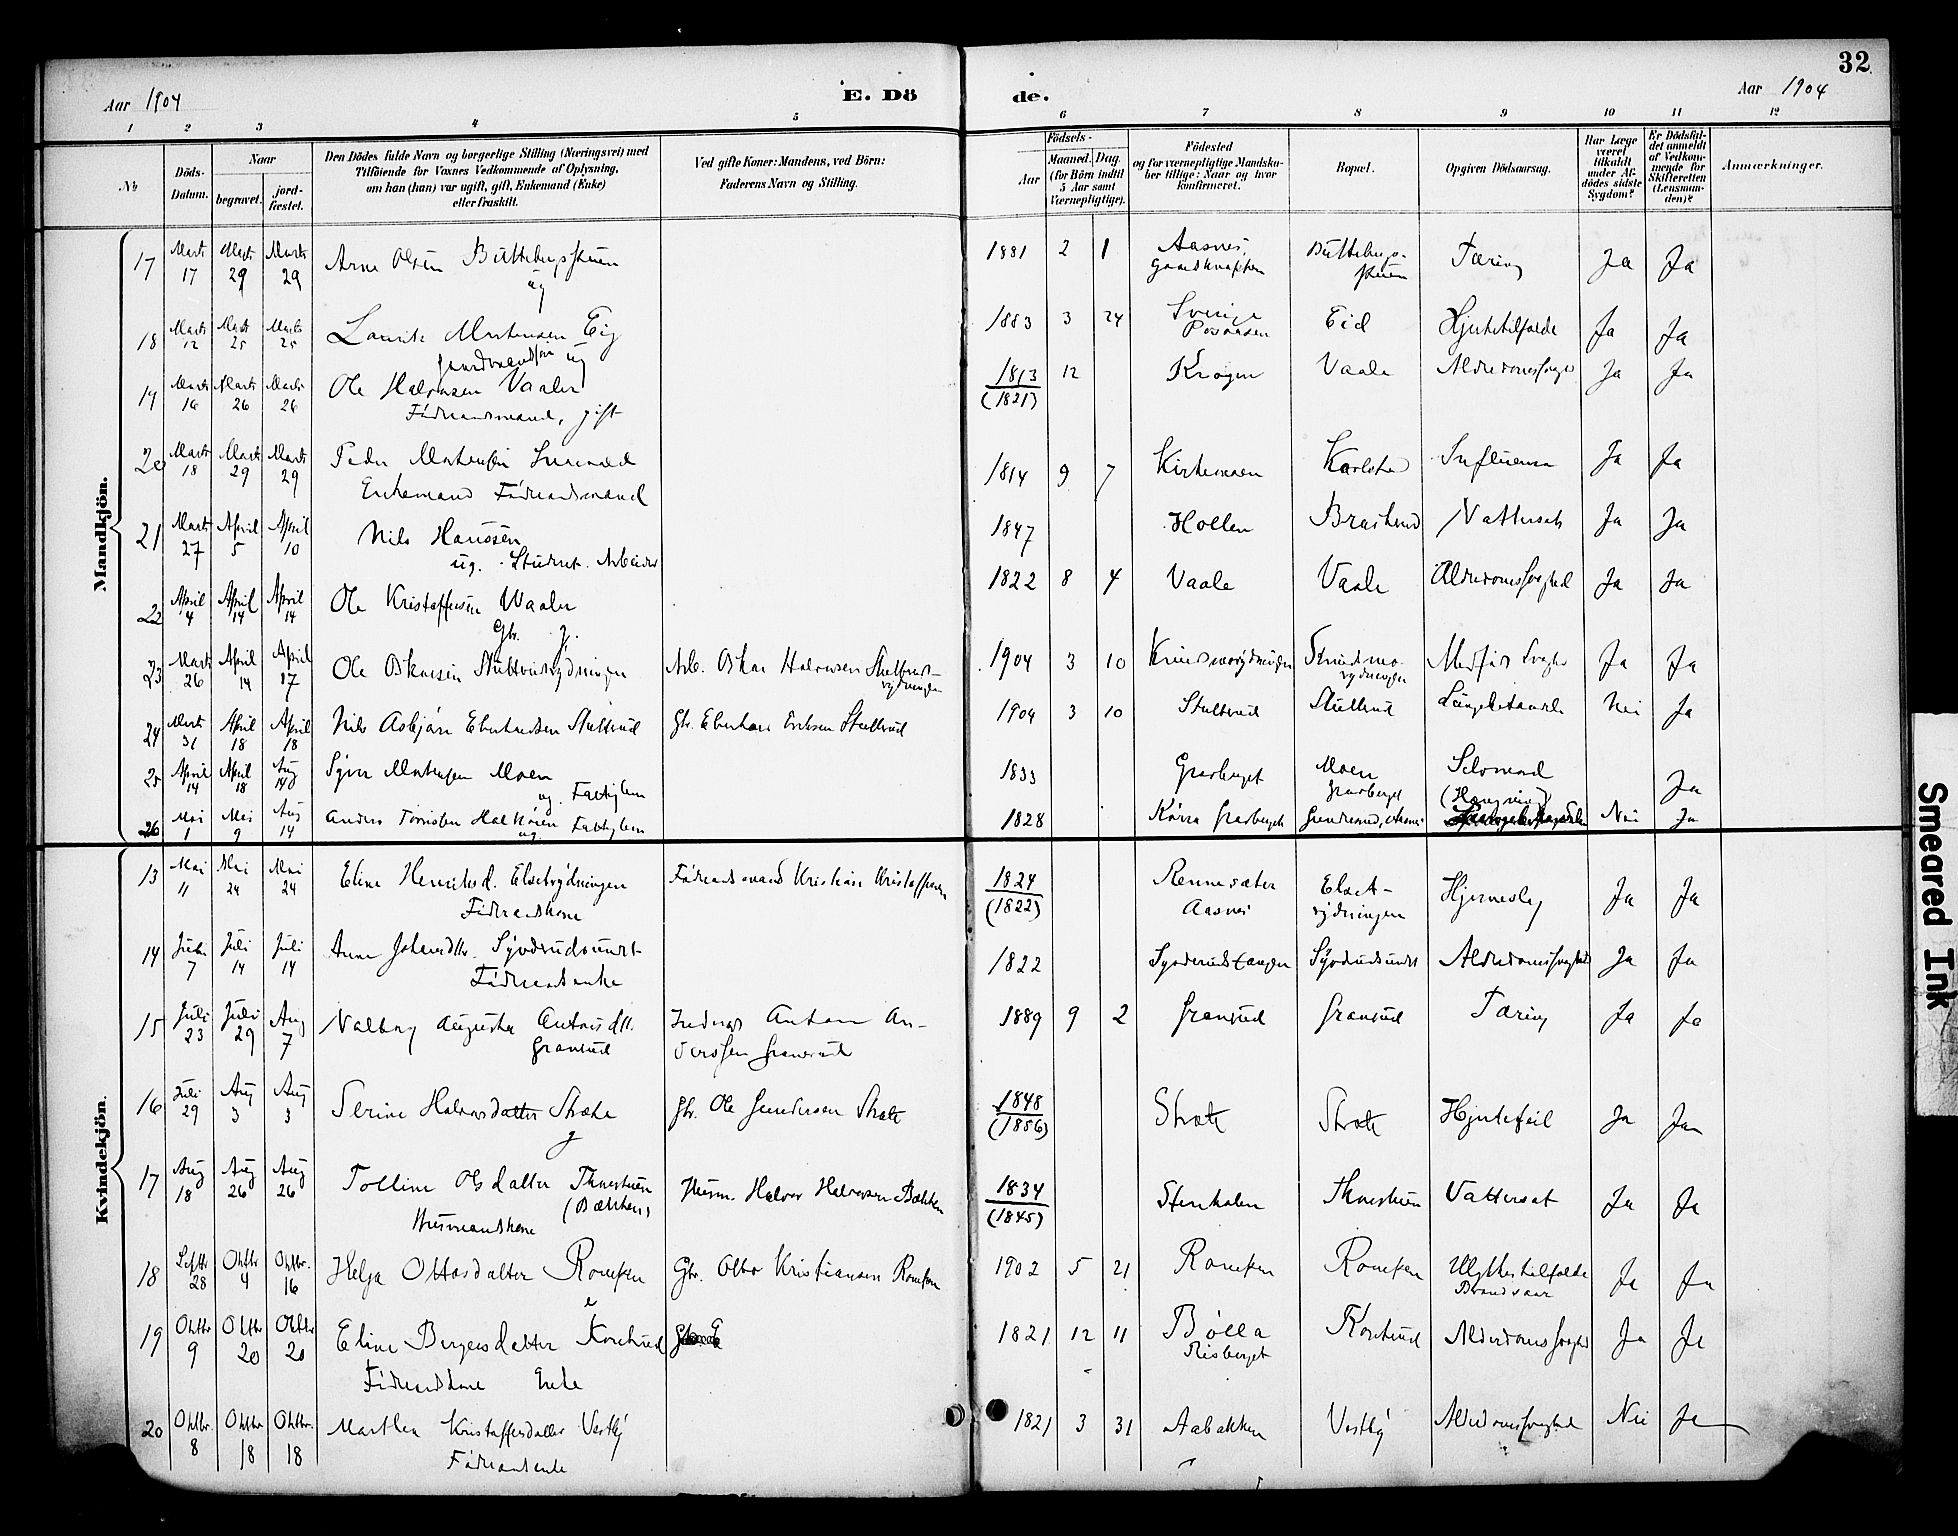 32
Aar 1904
E. Dö
de.
Aar 1904
1 2 3 4 5 6 7 8 9 10 11 12
No
Döds-Datum.
Naar
begravet.
jord-fæstet.
Den Dödes fulde Navn og borgerlige Stilling (Næringsvei) med
Tilföiende for Voxnes Vedkommende af Oplysning,
om han (hun) var ugift, gift, Enkemand (Enke)
eller fraskilt.
Ved gifte Koner: Mandens, ved Börn:
Faderens Navn og Stilling.
Födsels-
Aar
Maaned. Dag.
(for Börn indtil
5 Aar samt
Værnepligtige).
Födested
og for værnepligtige Mandsku-
ber tillige: Naar og hvor
konfirmeret.
Bopæl.
Opgiven Dödsaarsag.
Har Læge
været
tilkaldt
under Af-
dödes sidste
Sygdom?
Er Dödsfal-
det anmeldt
af Vedkom-
mende for
Skifteretten
(Lensman-
den)?
Anmærkninger.
Mandkjön.
17 Marts 17 Marts 29 Marts 29 Arne Olsen 1881 2 1 Aasnes, Tæring Ja Ja
ug
18 Marts 12 Marts 25 Marts 25 Laurits Mortensen Eig 1883 3 24 Sverige Eid Hjertetilfælde Ja Ja
ug
19 Marts 16 Marts 26 Marts 26 Ole Halvorsen Vaaler 1813 12 Krogen Vaale Ja Ja
(1821)
Föderaadsmand, gift
20 Marts 18 Marts 29 Marts 29 Peder Mortensen 1814 9 7 Kirkemoen Karlstad Influensa Ja Ja
Enkemand Föderaadsmand
21 Marts 27 April 5 April 10 Nils Hanssen 1847 Hollen Vattersot Ja Ja
ug. Student. Arbeider
22 April 4 April 14 April 14 Ole Kristoffersen Waaler 1822 8 4 Vaale Vaale Alderdomssvaghed Ja Ja
Gbr. g.
23 Marts 26 April 14 April 17 Ole Oskarsen Arb. Oskar Halvorsen 1904 3 10 Medfödt Svaghed Ja Ja
24 Marts 31 April 18 April 18 Nils Asbjörn Eberhardsen Stuttrud Gbr. Eberhard Eriksen Stuttrud 1904 3 10 Stuttrud Stuttrud Nei Ja
25 April 14 April 18 Aug 14 Syver Mortensen Moen 1833 Grasberget Moen Selvmord Ja
ug. Fattiglem Grasberget (Hængning)
26 Mai 1 Mai 9 Aug 14 Anders 1828 Grasberget Nei Ja
ug Fattiglem
Kvindekjön.
13 Mai 11 Mai 24 Mai 24 Eline Henriksd. Elsetrydningen Föderaadsmand Kristian Kristoffersen 1824 Rennesæter Elset- Hjerneslag Ja Ja
Föderaadskone (1822) Aasnes rydningen
14 Juli 7 Juli 14 Juli 14 Anne Johansdtr. Syverudsundet 1822 Syverudstangen Syverudsundet Alderdomssvaghed Ja Ja
Föderaadsenke
15 Juli 23 Juli 29 Aug 7 Valborg Augusta Antonsdtr. Anton An- 1889 9 2 Granerud Granerud Tæring Ja Ja
Granerud derssen Granerud
16 Juli 29 Aug 3 Aug 3 Serine Halvorsdatter Stræte Gbr. Ole Gundersen Stræte 1848 Stræte Stræte Hjertefeil Ja Ja
g (1856)
17 Aug 18 Aug 26 Aug 26 Olsdatter Husm. Halvor Halvorsen Bækken 1834 Stenholen Vattersot Ja Ja
(Bækken) (1845)
Husmandskone
18 Septbr 28 Oktbr 4 Oktbr. 16 Helga Ottosdatter Gbr. Otto Kristiansen 1902 5 21 Ulykkestilfælde Ja Ja
Brandsaar
19 Oktbr 9 Oktbr 20 Oktbr 20 Eline Bergersdatter 1821 12 11 Bölla Alderdomssvaghed Ja Ja
Risberget
Föderaadskone Enke
20 Oktbr. 8 Oktbr 18 Oktbr. 18 Marthea Kristoffersdatter Vestby 1821 3 31 Aabakken Vestby Alderdomssvaghed Nei Ja
Föderaadsenke
Smeared Ink